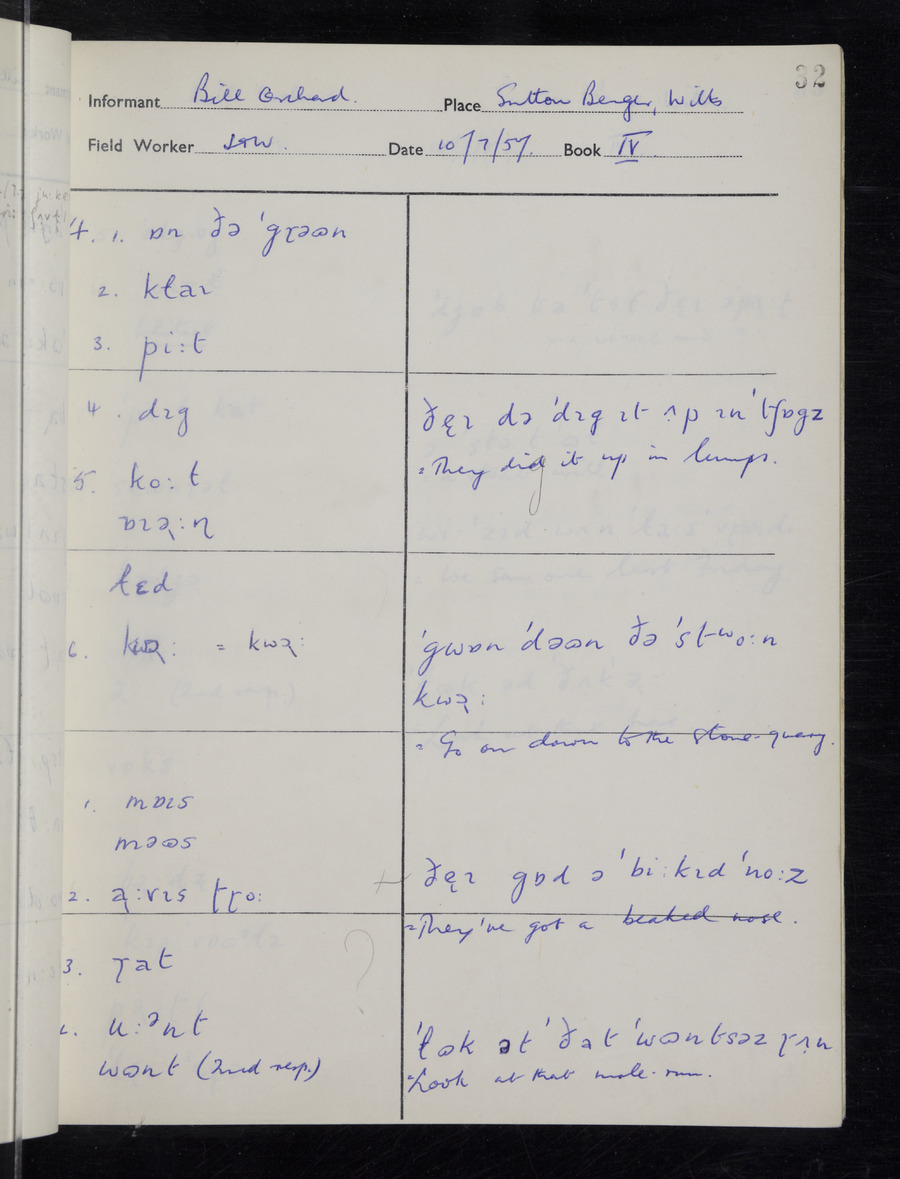 32
Informant Bill Orchard. Place Sutton Benger, Wilts
Field Worker Date 10/7/57. Book IV
4. 1. ɒn ðə ˈgɽəʊn
2. kɫaɪ
3. pi:t
4. dɪg ðęɪ də ˈdɪg ɪt ʌp ɪn ˈtʃɒgz
= They dig it up in lumps.
5. ko:t
ɒɪɚ:ɳ
ɫɛd
6. kwɚ: = kwɚ: ˈgwɒn ˈdəʊn ðə ˈstʷo:n
kwɚ:
= Go on down to the stone-quarry.
1. mɒɪs
məʊs
2. ɚ:vɪs ʈɽo: ðęɪ gɒd ə ˈbi:kɪd ˈno:z
= They've got a beaked nose.
3. ɽat
u:ᵊnt ˈɫʊk ət ˈðat ˈwʊntsəz ɽʌn
wʊnt (2nd resp.) = Look at that mole-run.